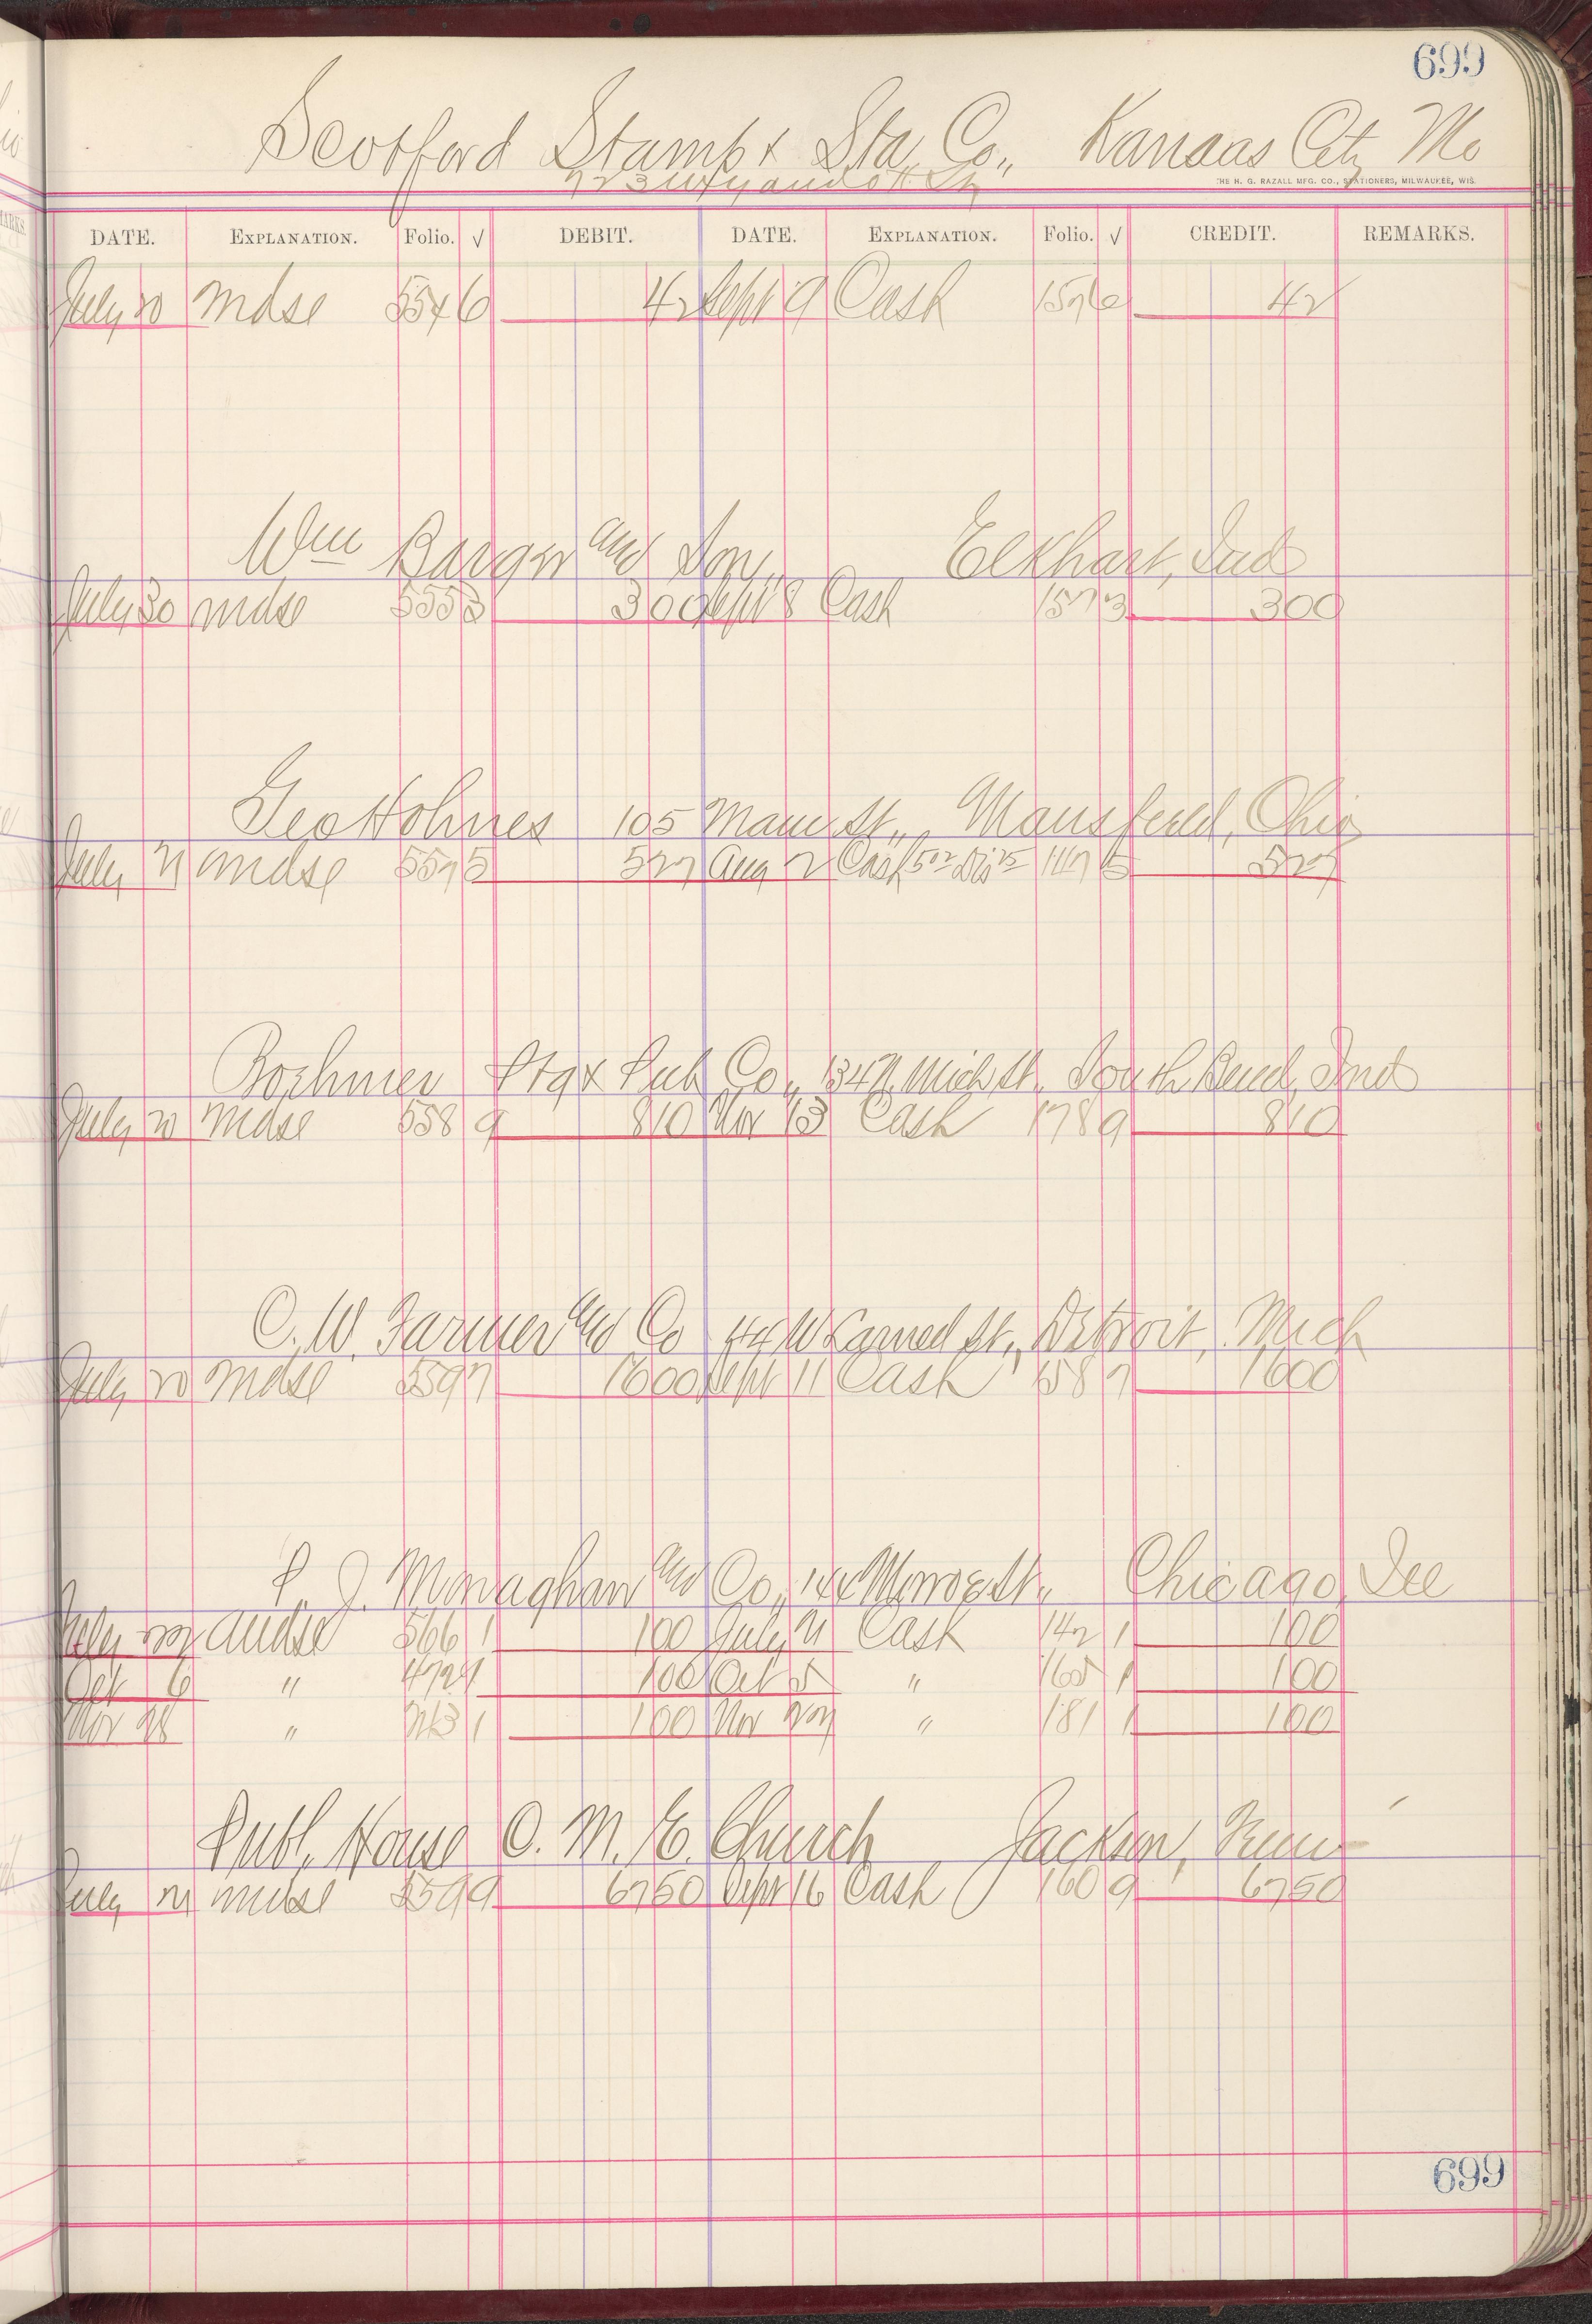 699
Scotford Stamp & Sta. Co., Kansas City Mo
723 Wyandott St
THE H. G. RAZALL MFG. CO., STATIONERS, MILWAUKEE, WIS.
DATE. EXPLANATION. Folio. √ DEBIT. DATE. EXPLANATION. Folio. √ CREDIT. REMARKS.
July 20 mdse 5546 42 Sept 9 Cash 1576 42
Wm Barger and Son, Elkhart, Ind
July 20 mdse 5553 300 Sept 8 Cash 1573 300
Geo Holmes 105 Main St., Mansfield, Ohio
July 21 mdse 5575 527 Aug 2 Cash 502 Dis 25 1475 527
Boehmer Ptg & Pub Co., 134 N. Mich St. South Bend, Ind
July 20 mdse 5589 810 Nov 13 Cash 1789 810
C. W. Farmer and Co 44 W Larned St., Detroit, Mich
July 20 mdse 5597 1600 Sept 11 Cash 1587 1600
P. J. Monaghan and Co, 144 Monroe St., Chicago, Ill
July mdse 5661 100 July 21 Cash 1421 100
Oct 6 " 100 Oct 5 " 1651 100
Nov 28 " 100 Nov 27 " 1811 100
Publ. House C. M. E. Church Jackson, Tenn
July 21 mdse 5599 6750 Sept 16 Cash 1609 6750
699